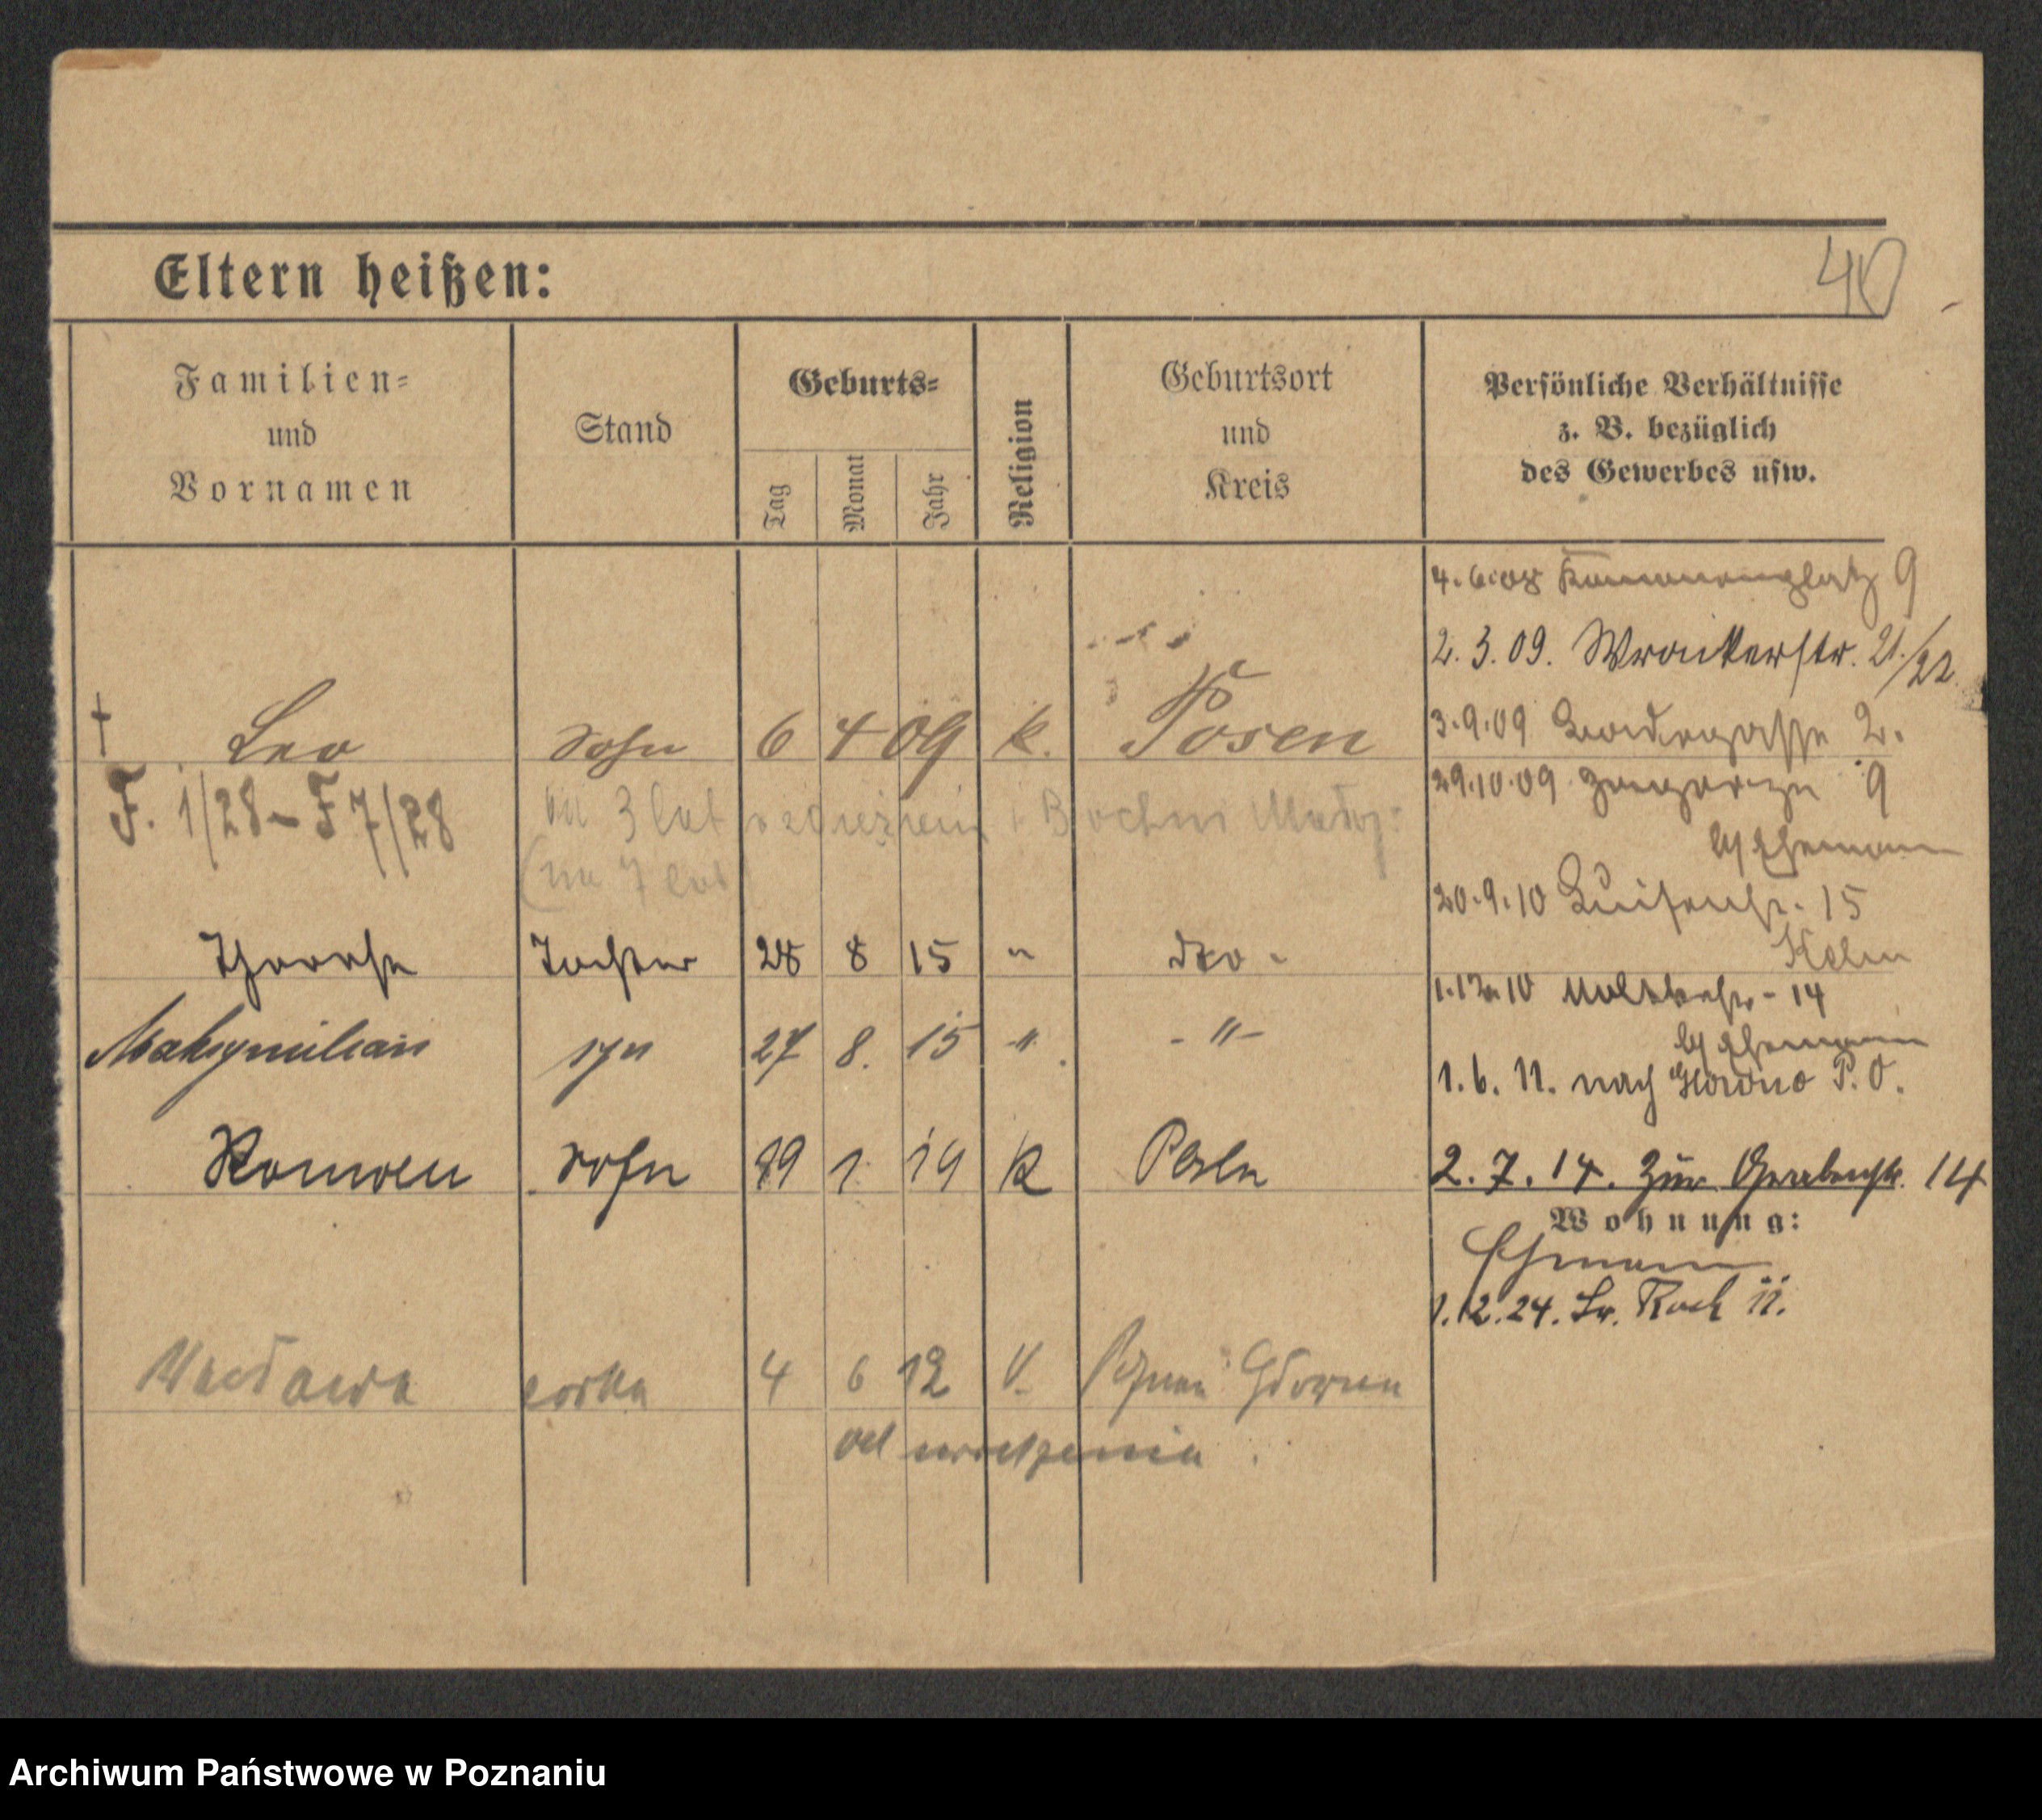 Eltern heißen:
40
Familien-
und
Vornamen
Stand
Geburts-
Tag
Monat
Jahr
Religion
Geburtsort
und
Kreis
Persönliche Verhältnisse
z. B. bezüglich
des Gewerbes usw.
4.6.08 9
2.3.09. Wronkerstr. 21/22
† Leo Sohn 6 4 09 k. Posen
3.9.09 2.
29.10.09 9
F. 1/28 – F 7/28
3 lat w więzieniu
Ehemann
(na 7 lat
20.9.10 Luisenstr. 15
Kelm
Tochter 28 8 15 " dto.
1.12.10 Moltkestr. 14
Ehemann
Maksymilian syn 27 8. 15 " - " -
1.6.11. nach P.O.
Roman Sohn 1 19 k Posen
2.7.14. Zur Grabenstr. 14
Wohnung:
Ehemann
1.12.24. Św. Roch 11.
Wacława córka 4 6 12
od urodzenia
Archiwum Państwowe w Poznaniu